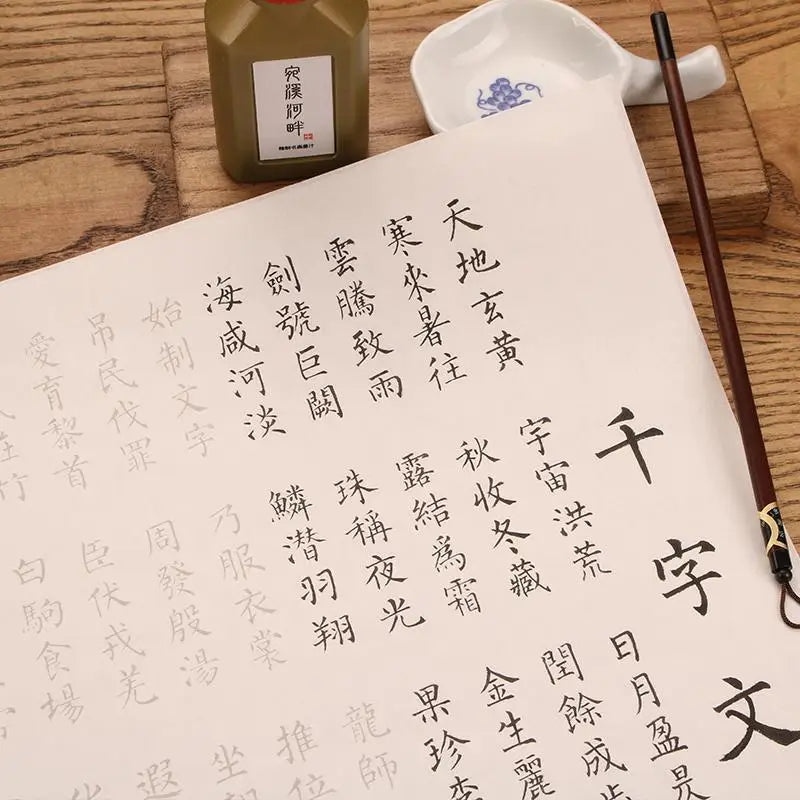 宛溪河畔
千字文
天地玄黃 宇宙洪荒 日月盈昃
寒來暑往 秋收冬藏 閏餘成
雲騰致雨 露結爲霜 金生麗
劍號巨闕 珠稱夜光 果珍李
海咸河淡 鱗潛羽翔 龍師
始制文字 乃服衣裳 推位
吊民伐罪 周發殷湯 坐
愛育黎首 臣伏戎羌 遐
在竹 白駒食場